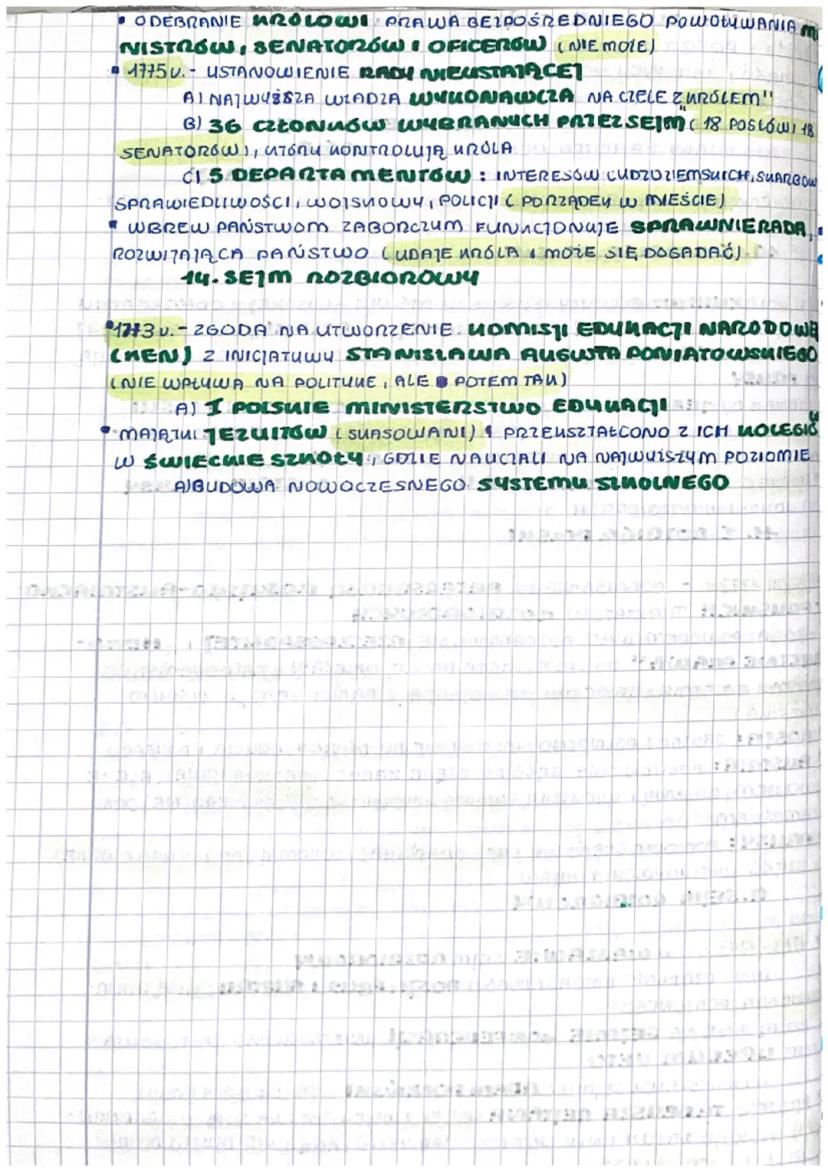 • ODEBRANIE KRÓLOWI PRAWA BEZPOŚREDNIEGO POWOŁYWANIA MI
NISTRÓW, SENATORÓW I OFICERÓW (NIE MOŻE)
• 1775 r. - USTANOWIENIE RADY NIEUSTAJĄCEJ
A) NAJWYŻSZA WŁADZA WYKONAWCZA NA CZELE Z KRÓLEM"
B) 36 CZŁONKÓW WYBRANYCH PRZEZ SEJM (18 POSŁÓW I 18
SENATORÓW), KTÓRY KONTROLUJĄ KRÓLA
C) 5 DEPARTAMENTÓW: INTERESÓW CUDZOZIEMSKICH, SKARBOW
SPRAWIEDLIWOŚCI, WOJSKOWY, POLICJI (PORZĄDEK W MIEŚCIE)
• WBREW PAŃSTWOM ZABORCZYM FUNKCJONUJE SPRAWNIE RADA,
ROZWIJAJĄCA PAŃSTWO (UDAJE KRÓLA I MOŻE SIĘ DOGADAĆ)
14. SEJM ROZBIOROWY
• 1773 r. - ZGODA NA UTWORZENIE KOMISJI EDUKACJI NARODOWE
(KEN) Z INICJATYWY STANISŁAWA AUGUSTA PONIATOWSKIEGO
(NIE WPŁYWA NA POLITYKĘ, ALE POTEM TAK)
A) I POLSKIE MINISTERSTWO EDUKACJI
• MAJĄTKI JEZUITÓW (SKASOWANI) I PRZEKSZTAŁCONO Z ICH KOLEGIÓ
W ŚWIECKIE SZKOŁY, GDZIE NAUCZALI NA NAJWYŻSZYM POZIOMIE
A) BUDOWA NOWOCZESNEGO SYSTEMU SZKOLNEGO